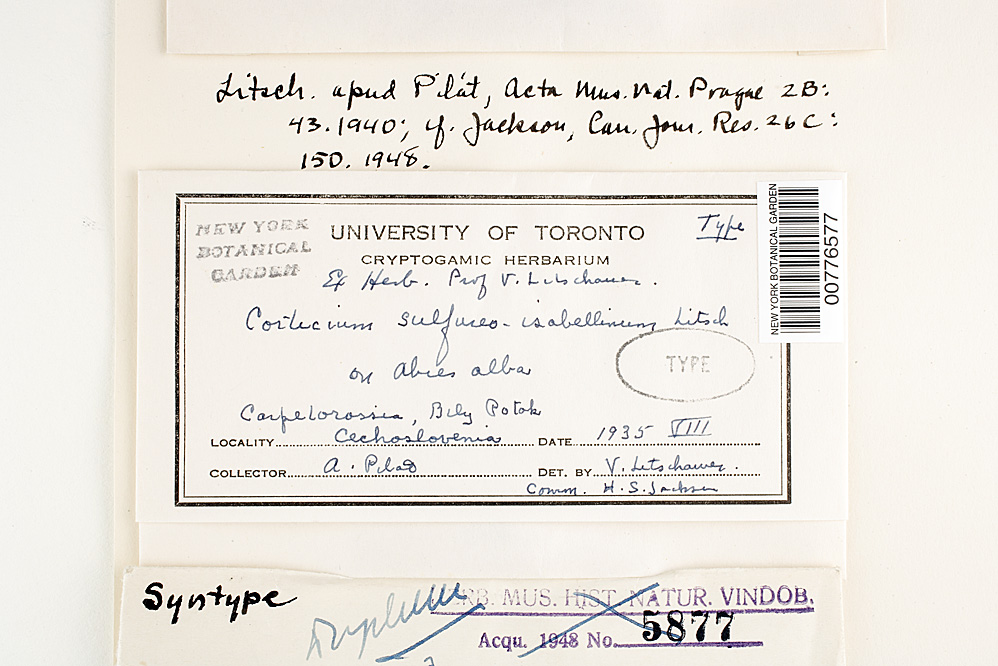 Litsch. apud Pilát, Acta Mus. Nat. Prague 2B:
43. 1940; cf. Jackson, Can. Jour. Res. 26C:
150. 1948.
NEW YORK
BOTANICAL
GARDEN
UNIVERSITY OF TORONTO
Type
CRYPTOGAMIC HERBARIUM
Ex Herb. Prof V. Litschauer.
Corticium sulfureo-isabellinum Litsch
on Abies alba
TYPE
Carpetorossia, Bily Potok
LOCALITY Cechoslovenia DATE 1935 VIII
COLLECTOR A. Pilat DET. BY V. Litschauer.
Comm. H. S. Jackson
NEW YORK BOTANICAL GARDEN
00776577
Syntype
HERB. MUS. HIST. NATUR. VINDOB.
Acqu. 1948 No. 5877